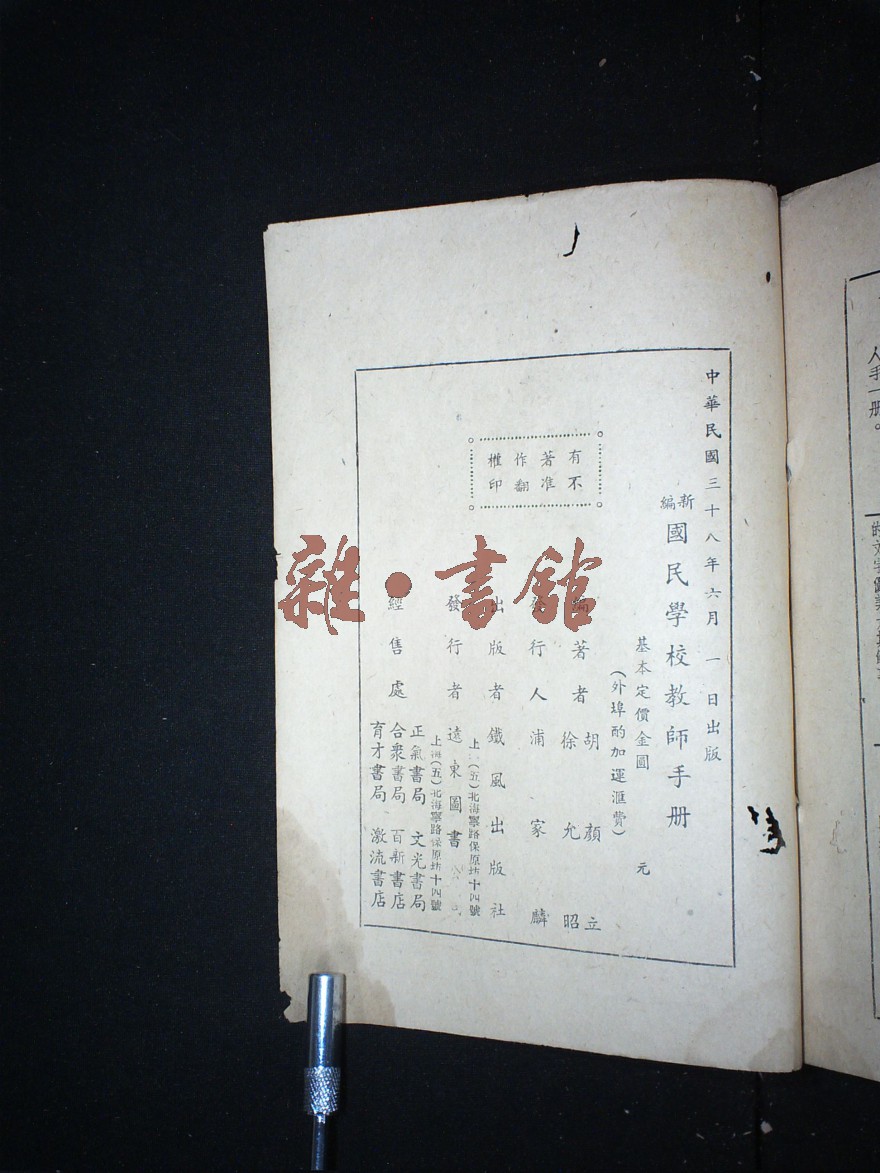 中華民國三十八年六月一日出版
新編國民學校教師手册
基本定價金圓 元
(外埠酌加運滙費)
有著作權
不准翻印
編著者 胡顏立
徐允昭
發行人 浦家麟
出版者 鐵風出版社
上海(五)北海寧路保原坊十四號
發行者 遠東圖書公司
上海(五)北海寧路保原坊十四號
經售處
正氣書局 文光書局
合衆書局 百新書店
育才書局 激流書店
雜·書館
人手一册。